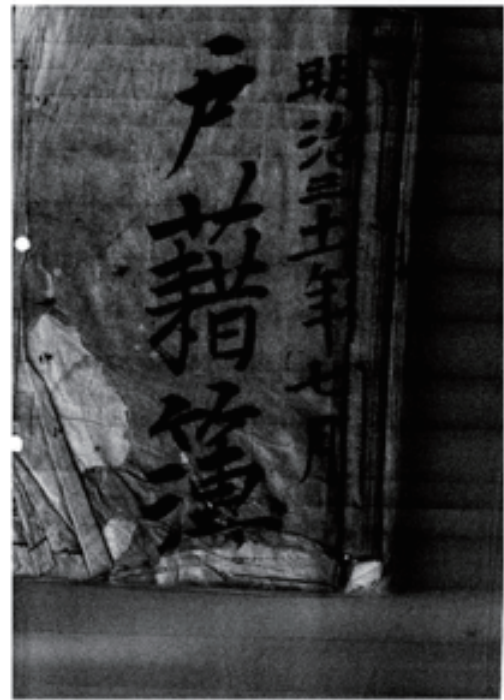 明治三十一年七月
戸藉簿